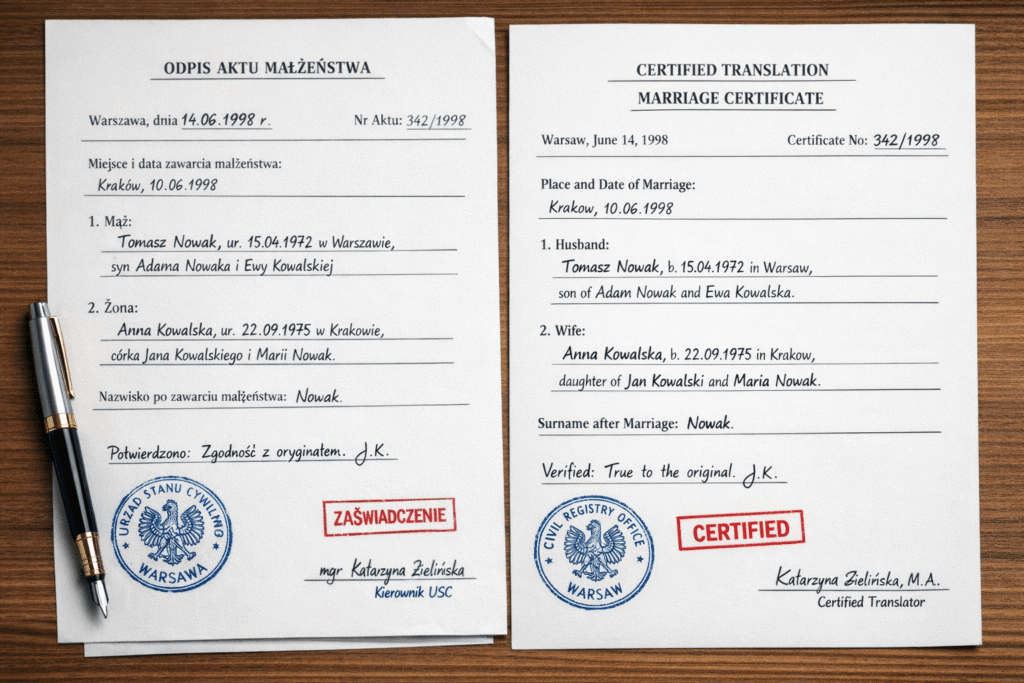 ODPIS AKTU MAŁŻEŃSTWA
Warszawa, dnia 14.06.1998 r.
Nr Aktu: 342/1998
Miejsce i data zawarcia małżeństwa:
Kraków, 10.06.1998
1. Mąż:
Tomasz Nowak, ur. 15.04.1972 w Warszawie,
syn Adama Nowaka i Ewy Kowalskiej
2. Żona:
Anna Kowalska, ur. 22.09.1975 w Krakowie,
córka Jana Kowalskiego i Marii Nowak.
Nazwisko po zawarciu małżeństwa: Nowak.
Potwierdzono: Zgodność z oryginałem. J.K.
URZĄD STANU CYWILNIO
WARSAWA
ZAŚWIADCZENIE
mgr Katarzyna Zielińska
Kierownik USC
CERTIFIED TRANSLATION
MARRIAGE CERTIFICATE
Warsaw, June 14, 1998
Certificate No: 342/1998
Place and Date of Marriage:
Krakow, 10.06.1998
1. Husband:
Tomasz Nowak, b. 15.04.1972 in Warsaw,
son of Adam Nowak and Ewa Kowalska.
2. Wife:
Anna Kowalska, b. 22.09.1975 in Krakow,
daughter of Jan Kowalski and Maria Nowak.
Surname after Marriage: Nowak.
Verified: True to the original. J.K.
CIVIL REGISTRY OFFICE
WARSAW
CERTIFIED
Katarzyna Zielińska, M.A.
Certified Translator